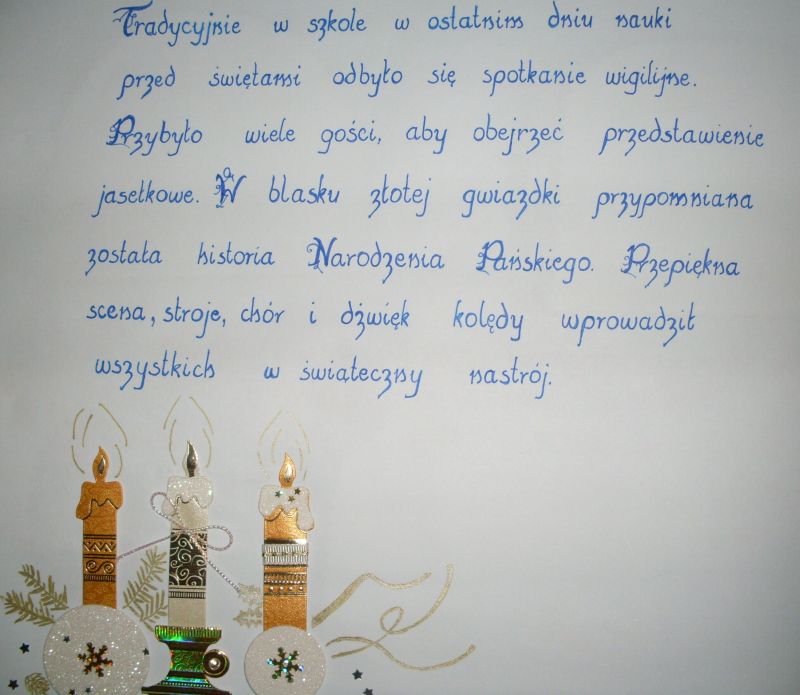 Tradycyjnie w szkole w ostatnim dniu nauki
przed świętami odbyło się spotkanie wigilijne.
Przybyło wiele gości, aby obejrzeć przedstawienie
jasełkowe. W blasku złotej gwiazdki przypomniana
została historia Narodzenia Pańskiego. Przepiękna
scena, stroje, chór i dźwięk kolędy wprowadził
wszystkich w świąteczny nastrój.